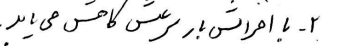 ۲- با افزایش بار سرعت کاهش می یابد.